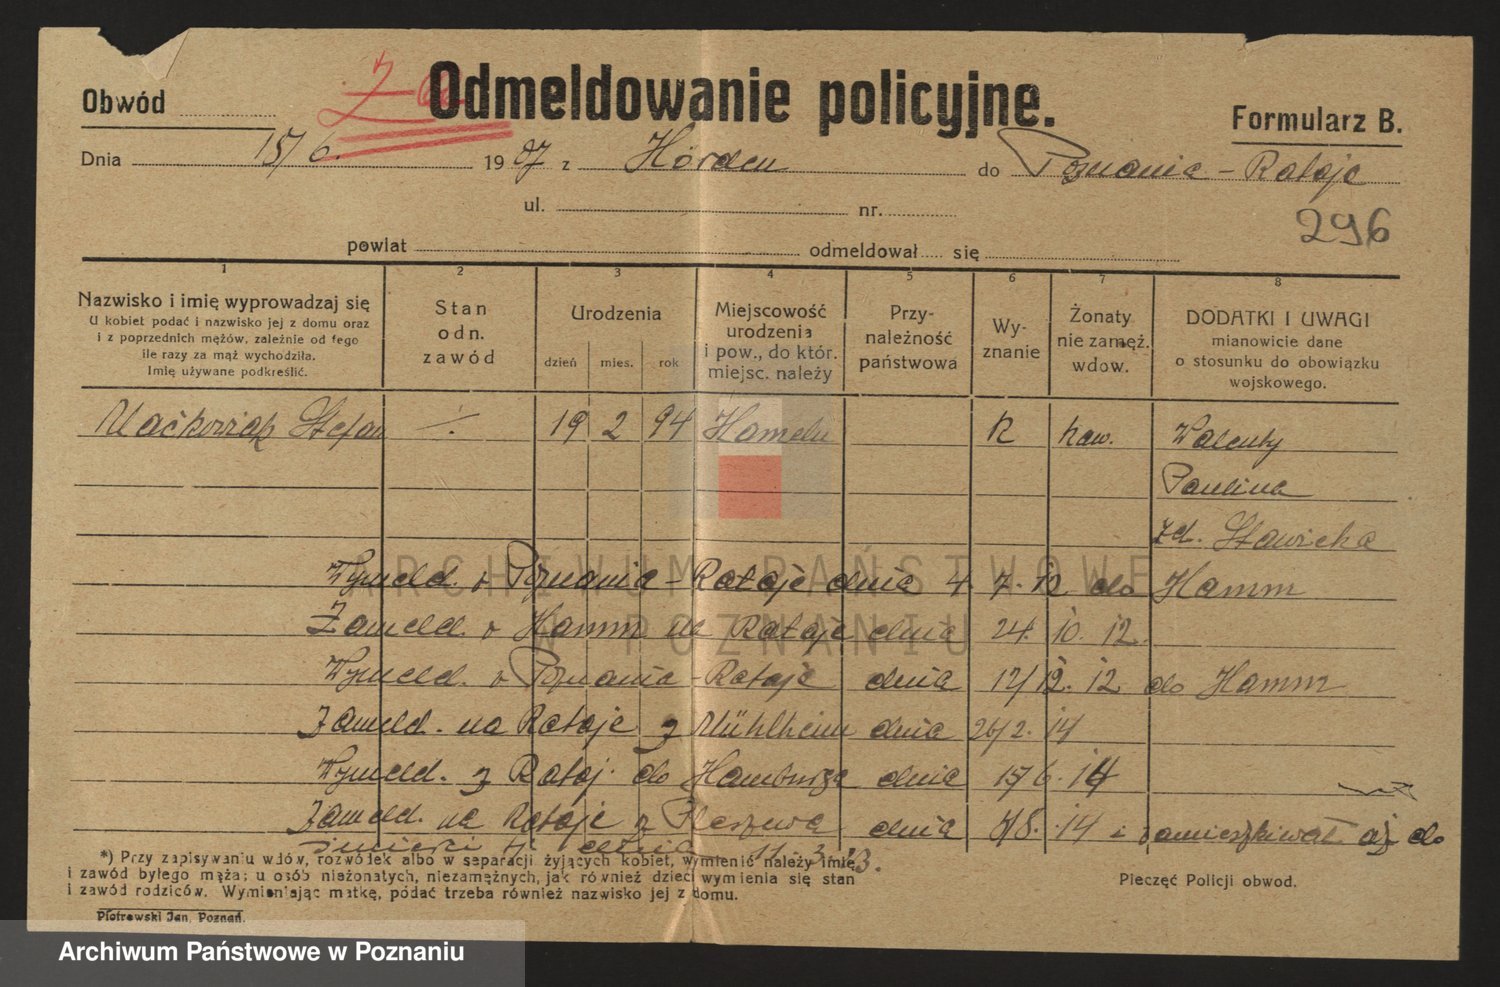 Obwód
Odmeldowanie policyjne.
Formularz B.
Dnia 15/6. 1907 z Hörden do Poznania - Rataje
ul. nr.
296
powiat odmeldował się
1 2 3 4 5 6 7 8
Nazwisko i imię wyprowadzaj się
U kobiet podać i nazwisko jej z domu oraz
i z poprzednich mężów, zależnie od tego
ile razy za mąż wychodziła.
Imię używane podkreślić.
Stan
odn.
zawód
Urodzenia
dzień mies. rok
Miejscowość
urodzenia
i pow., do któr.
miejsc. należy
Przy-
należność
państwowa
Wy-
znanie
Żonaty
nie zamęż.
wdow.
DODATKI I UWAGI
mianowicie dane
o stosunku do obowiązku
wojskowego.
Maćkowiak Stefan 19 2 94 Hameln K kaw. Walenty
Paulina
zd. Stawicka
Wymeld. z Poznania - Rataje dnia 4. 7. 12 do Hamm
Zameld. z Hamm na Rataje dnia 24. 10. 12.
Wymeld. z Poznania - Rataje dnia 12/12. 12 do Hamm
Zameld. na Rataje z Mühlheim dnia 26/2. 14
Wymeld. z Rataj. do Hamburga dnia 15/6. 14
Zameld. na Rataje z Pleszewa dnia 8. 14 i zamieszkiwał aż do
śmierci tj. dnia 11. 3.
*) Przy zapisywaniu wdów, rozwódek albo w separacji żyjących kobiet, wymienić należy imię
i zawód byłego męża; u osób nieżonatych, niezamężnych, jak również dzieci wymienia się stan
i zawód rodziców. Wymieniając matkę, podać trzeba również nazwisko jej z domu.
Pieczęć Policji obwod.
Piotrowski Jan, Poznań.
ARCHIWUM PAŃSTWOWE
W POZNANIU
Archiwum Państwowe w Poznaniu